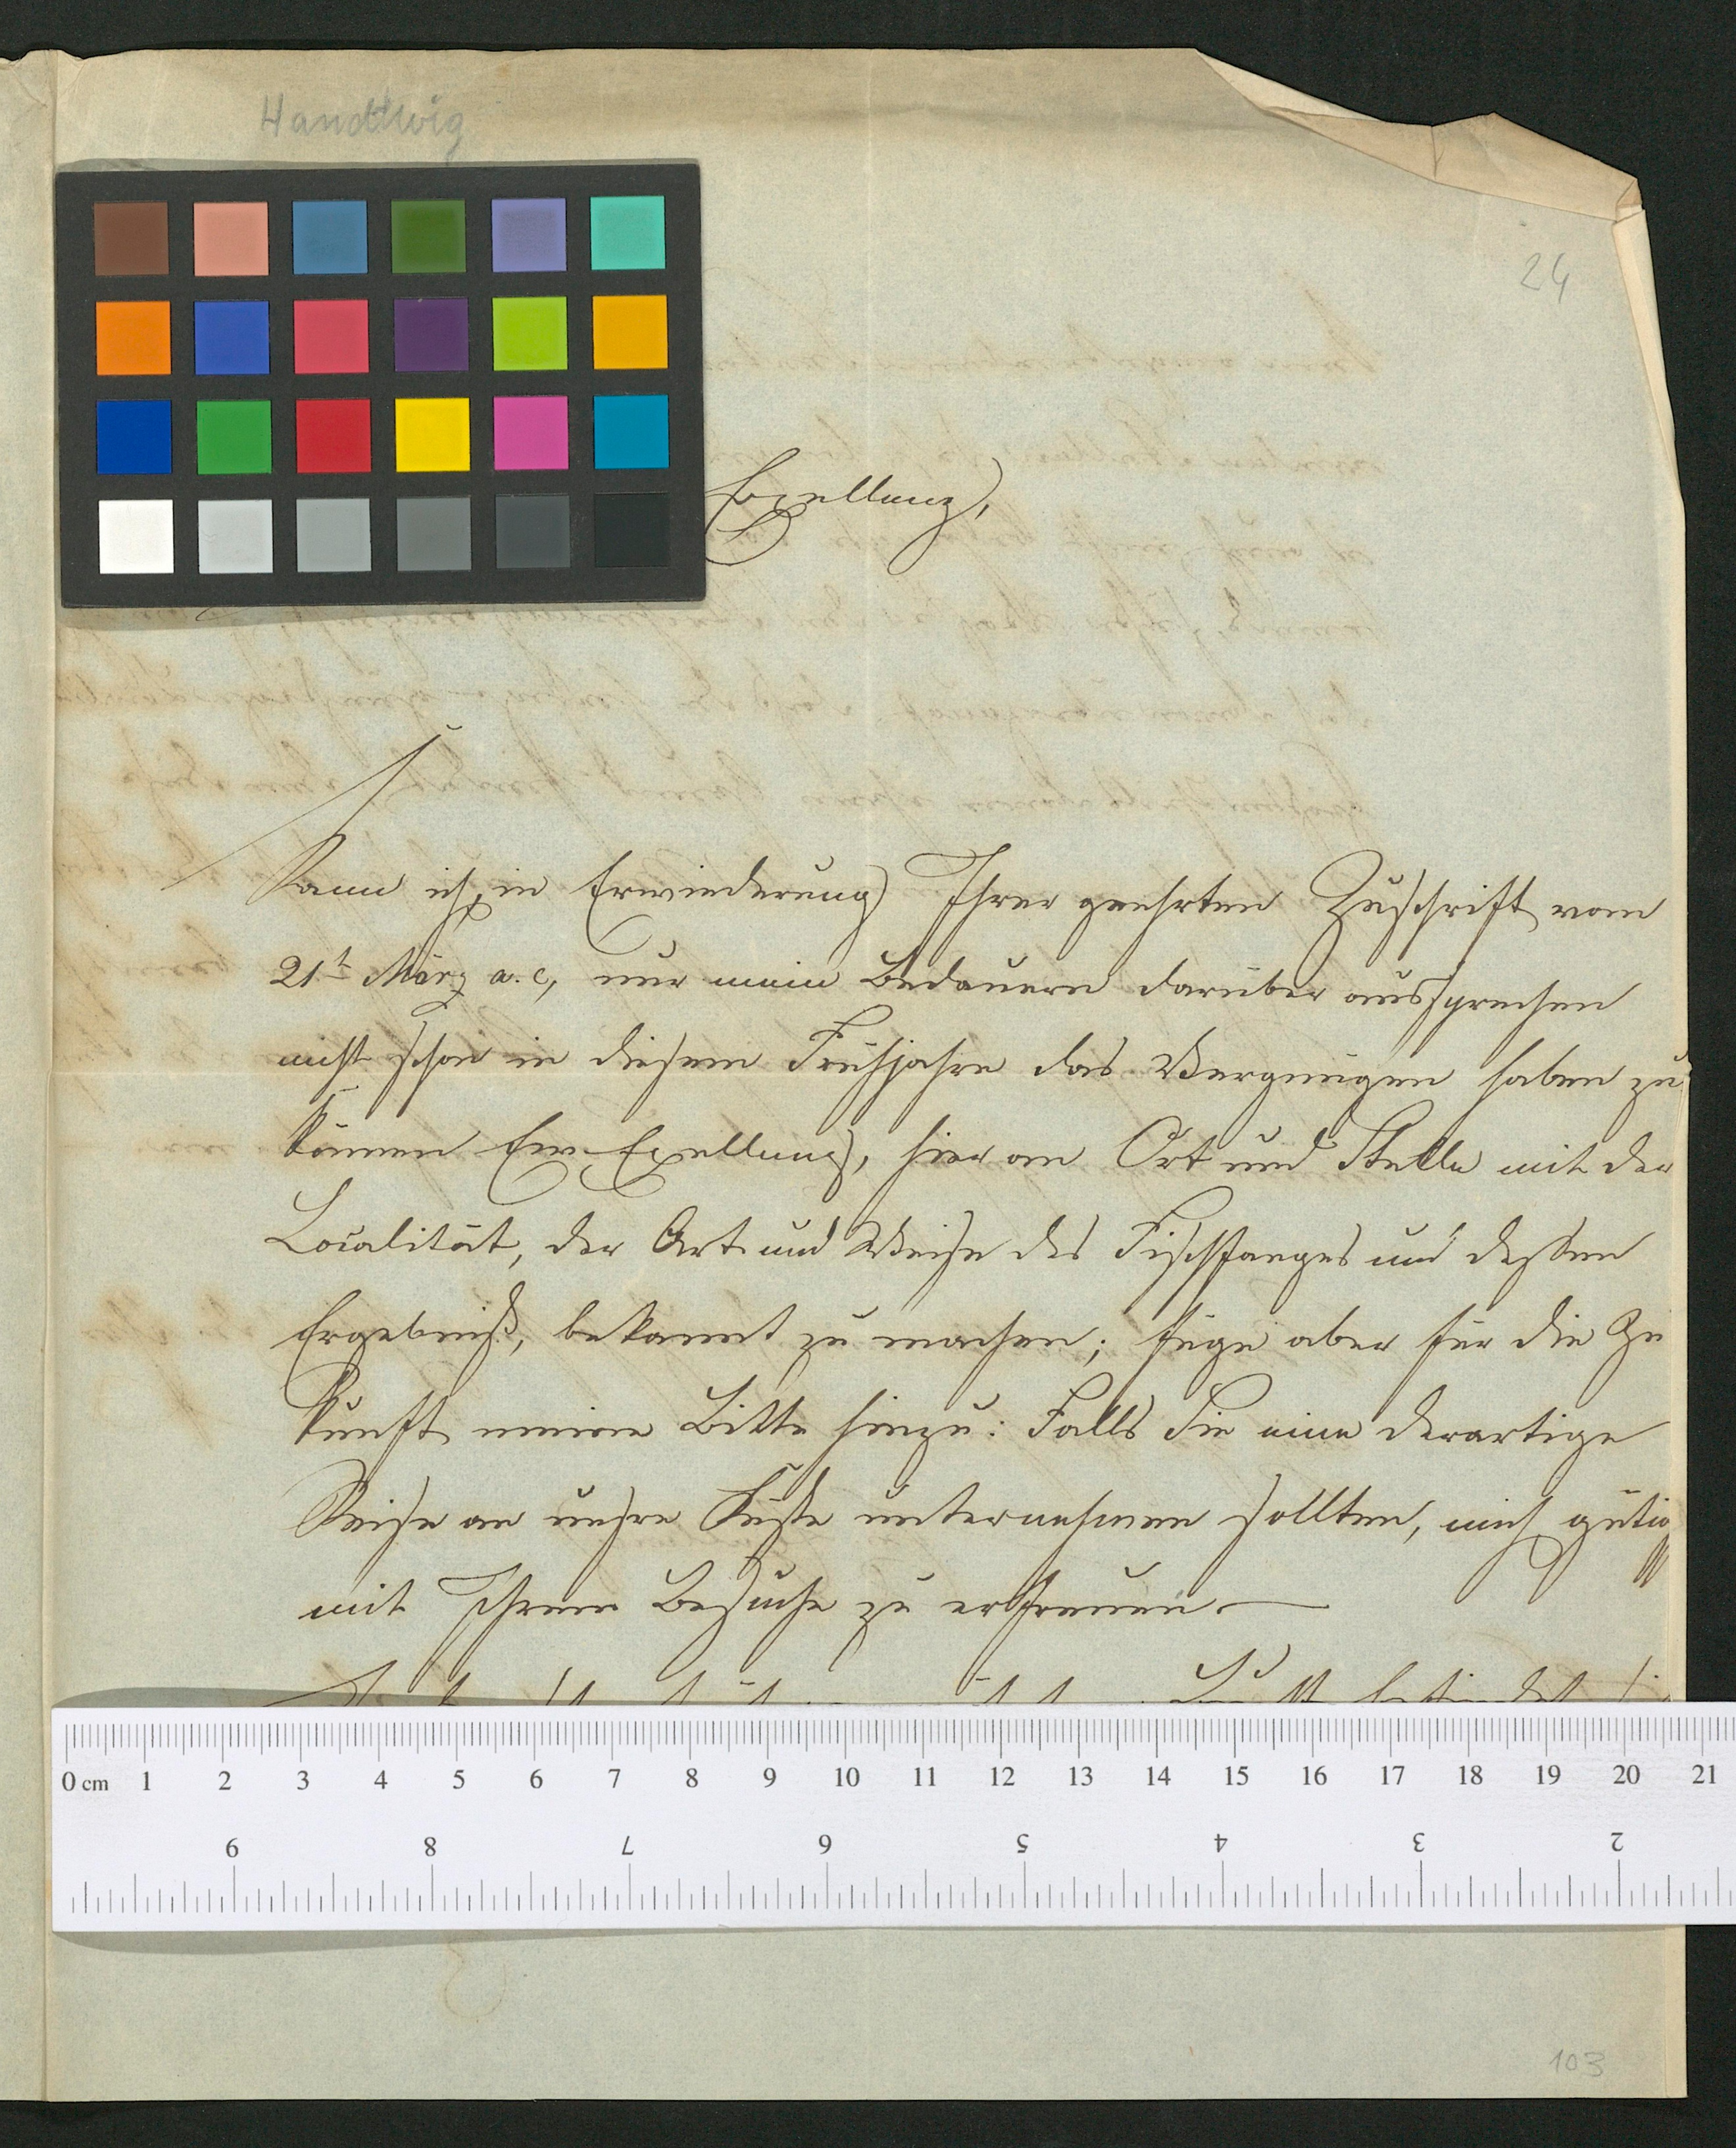 Handtwig
24
Exellenz,
Kann ich, in Erwiederung Ihrer geehrten Zuschrift vom
21t März a. c, nur mein Bedauern darüber aussprechen
nicht schon in diesem Frühjahre das Vergnügen haben zu
können Ew. Exellenz, hier an Ort und Stelle mit der
Localität, der Art und Weise des Fischfanges und dessen
Ergebniß, bekannt zu machen; füge aber für die Zu
kunft meine Bitte hinzu: Falls Sie eine derartige
Reise an unsre Küste unternehmen sollten, mich gütig
mit Ihrem Besuche zu erfreuen.
0 cm 1 2 3 4 5 6 7 8 9 10 11 12 13 14 15 16 17 18 19 20 21
9 8 7 6 5 4 3 2
103